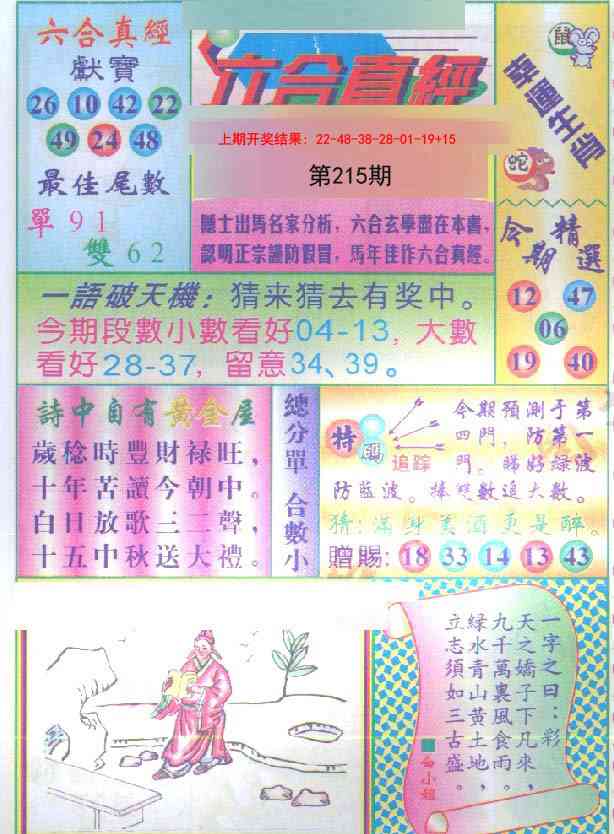 六合真經
獻寶
26 10 42 22
49 24 48
最佳尾數
單91
雙62
六合真經
上期开奖结果：22-48-38-28-01-19+15
第215期
隱士出馬名家分析，六合玄學盡在本書，
認明正宗謹防假冒，馬年佳作六合真經。
鼠
幸運生肖
蛇
今期精選
12 47
06
19 40
一語破天機：猜来猜去有奖中。
今期段數小數看好04-13，大數
看好28-37，留意34、39。
詩中自有黃金屋
歲稔時豐財禄旺，
十年苦讀今朝中。
白日放歌三二聲，
十五中秋送大禮。
總分單 合數小
特碼
追踪
今期預測于第
四門，防第一
門。睇好绿波
防監波。捧雙數追大數。
猜：滿身美酒更是醉。
贈賜：18 33 14 13 43
一字之曰：彩
天之嬌子下凡來，
九千萬裏風食雨。
緑水青山黄土地，
立志須如三古盛。
白小姐